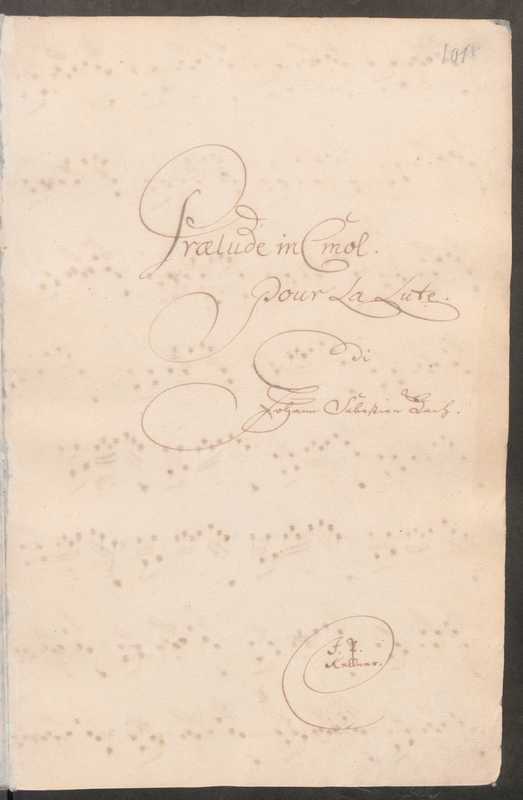 1018
Prælude in Cmol.
pour La Lute.
di
Johann Sebastian Bach.
J. P.
Kellner.